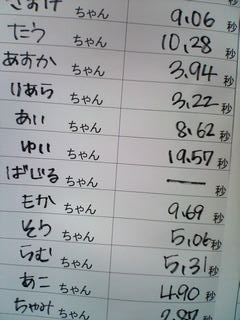 ちゃん 9.06 秒
だう ちゃん 10.28 秒
あすか ちゃん 3.94 秒
りあら ちゃん 3.22 秒
あい ちゃん 8.62 秒
ゆい ちゃん 19.57 秒
ばじる ちゃん — 秒
もか ちゃん 9.69 秒
そら ちゃん 5.06 秒
らむ ちゃん 5.31 秒
あこ ちゃん 4.90 秒
ちゃみ ちゃん 2.87 秒